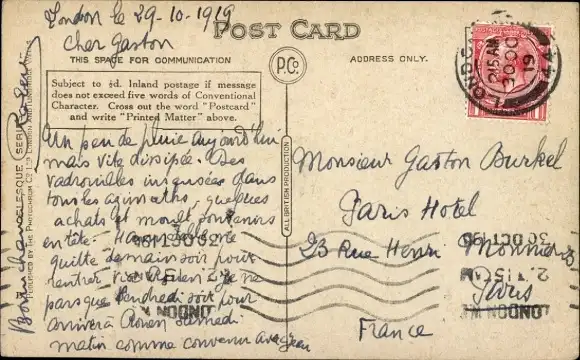 London le 29-10-1919
Cher Gaston
POST CARD
THIS SPACE FOR COMMUNICATION
ADDRESS ONLY.
P.Co.
Subject to ½d. Inland postage if message
does not exceed five words of Conventional
Character. Cross out the word "Postcard"
and write "Printed Matter" above.
Un peu de pluie aujourd'hui
mais vite dissipée. Des
vadrouilles insensées dans
tous les azimuths, quelques
achats et moult souvenirs
en tête.
quitte demain soir pour
rentrer je ne
pars que Vendredi soir pour
arriver à Rouen Samedi
matin comme convenu avec Jean
Bonne chance
ALL BRITISH PRODUCTION
Monsieur Gaston Burkel
Paris Hotel
23 Rue Henri Monnier 23
Paris
France
LONDON
2.15 AM
30 OC
19
LONDON W.1
2.15 AM
30 OCT 19
LONDON W.1
2.15 AM
30 OCT 19